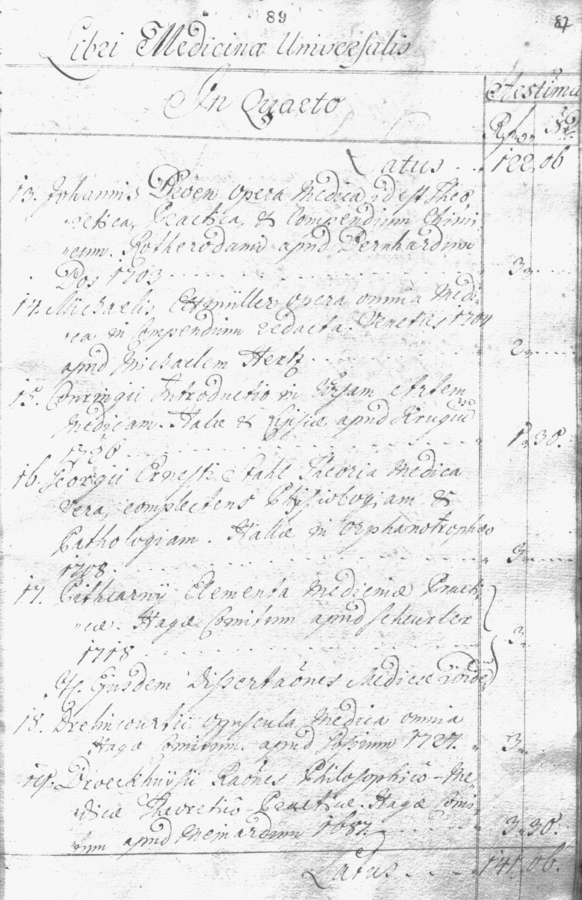 89
Libri Medicinæ Universalis
Æstima
In Quarto
Rf. Xr.
Latus .. 122,06
13. Johannis opera medica, id est Theo,
retica, Practica, & Compendium Chimi,
cum. Rotherodami apud Bernhardum
Bos 1703 3
14. Michaelis Etmüller opera omnia Medi,
ca in Compendium redacta. Venetiis 1704
apud Michaelem Hertz 2
15. Conringii Introductio in Artem
Medicam. Halæ & Lipsiæ apud Krugium
1726 1,30.
16. Georgii Ernesti Stahl Theoria Medica
vera, complectens Physiologiam &
Pathologiam. Hallæ in orphanotropheo
1708. 3
17. Pitkarnii Elementa Medicinæ Practi,
cæ. Hagæ Comitum apud Scheurler
1718 3
Ejusdem Dissertaões Medicæ
18. Drelincourtii opuscula Medica omnia
Hagæ Comitum. apud 1727. 3
Broeckhuysii Raões Philosophico-Me,
dicæ Theoretico Practicæ. Hagæ Comi,
tum apud 1687. 3,30.
Latus 141,06.